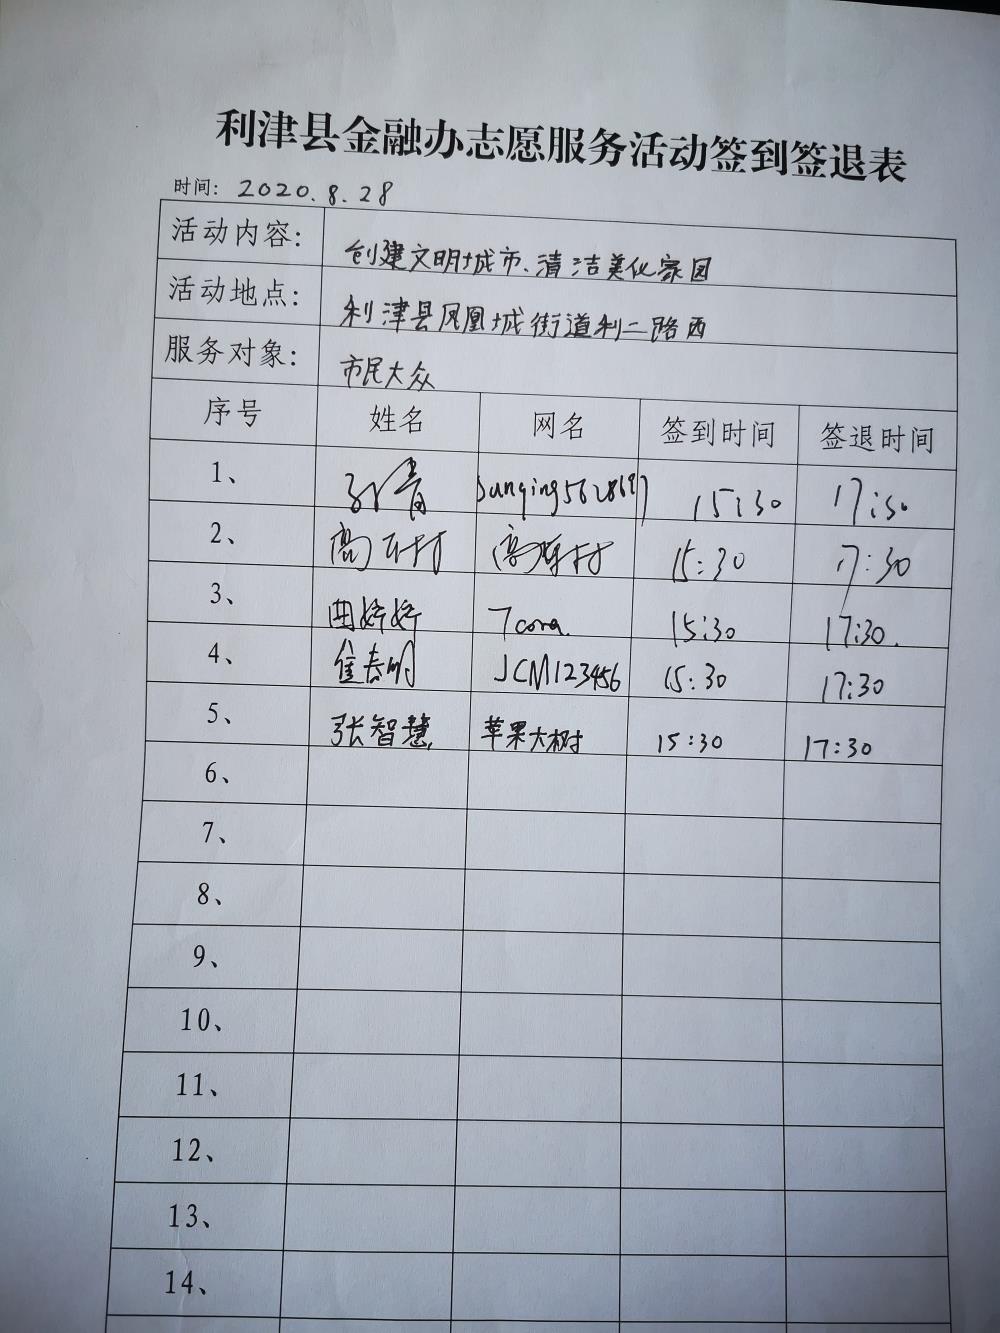 利津县金融办志愿服务活动签到签退表
时间: 2020.8.28
活动内容: 创建文明城市、清洁美化家园
活动地点: 利津县凤凰城街道利二路西
服务对象: 市民大众
序号 姓名 网名 签到时间 签退时间
1、 孙青 15:30 17:30
2、 15:30 17:30
3、 曲婷婷 Tcora. 15:30 17:30.
4、 JCM123456 15:30 17:30
5、 张智慧 苹果大树 15:30 17:30
6、
7、
8、
9、
10、
11、
12、
13、
14、